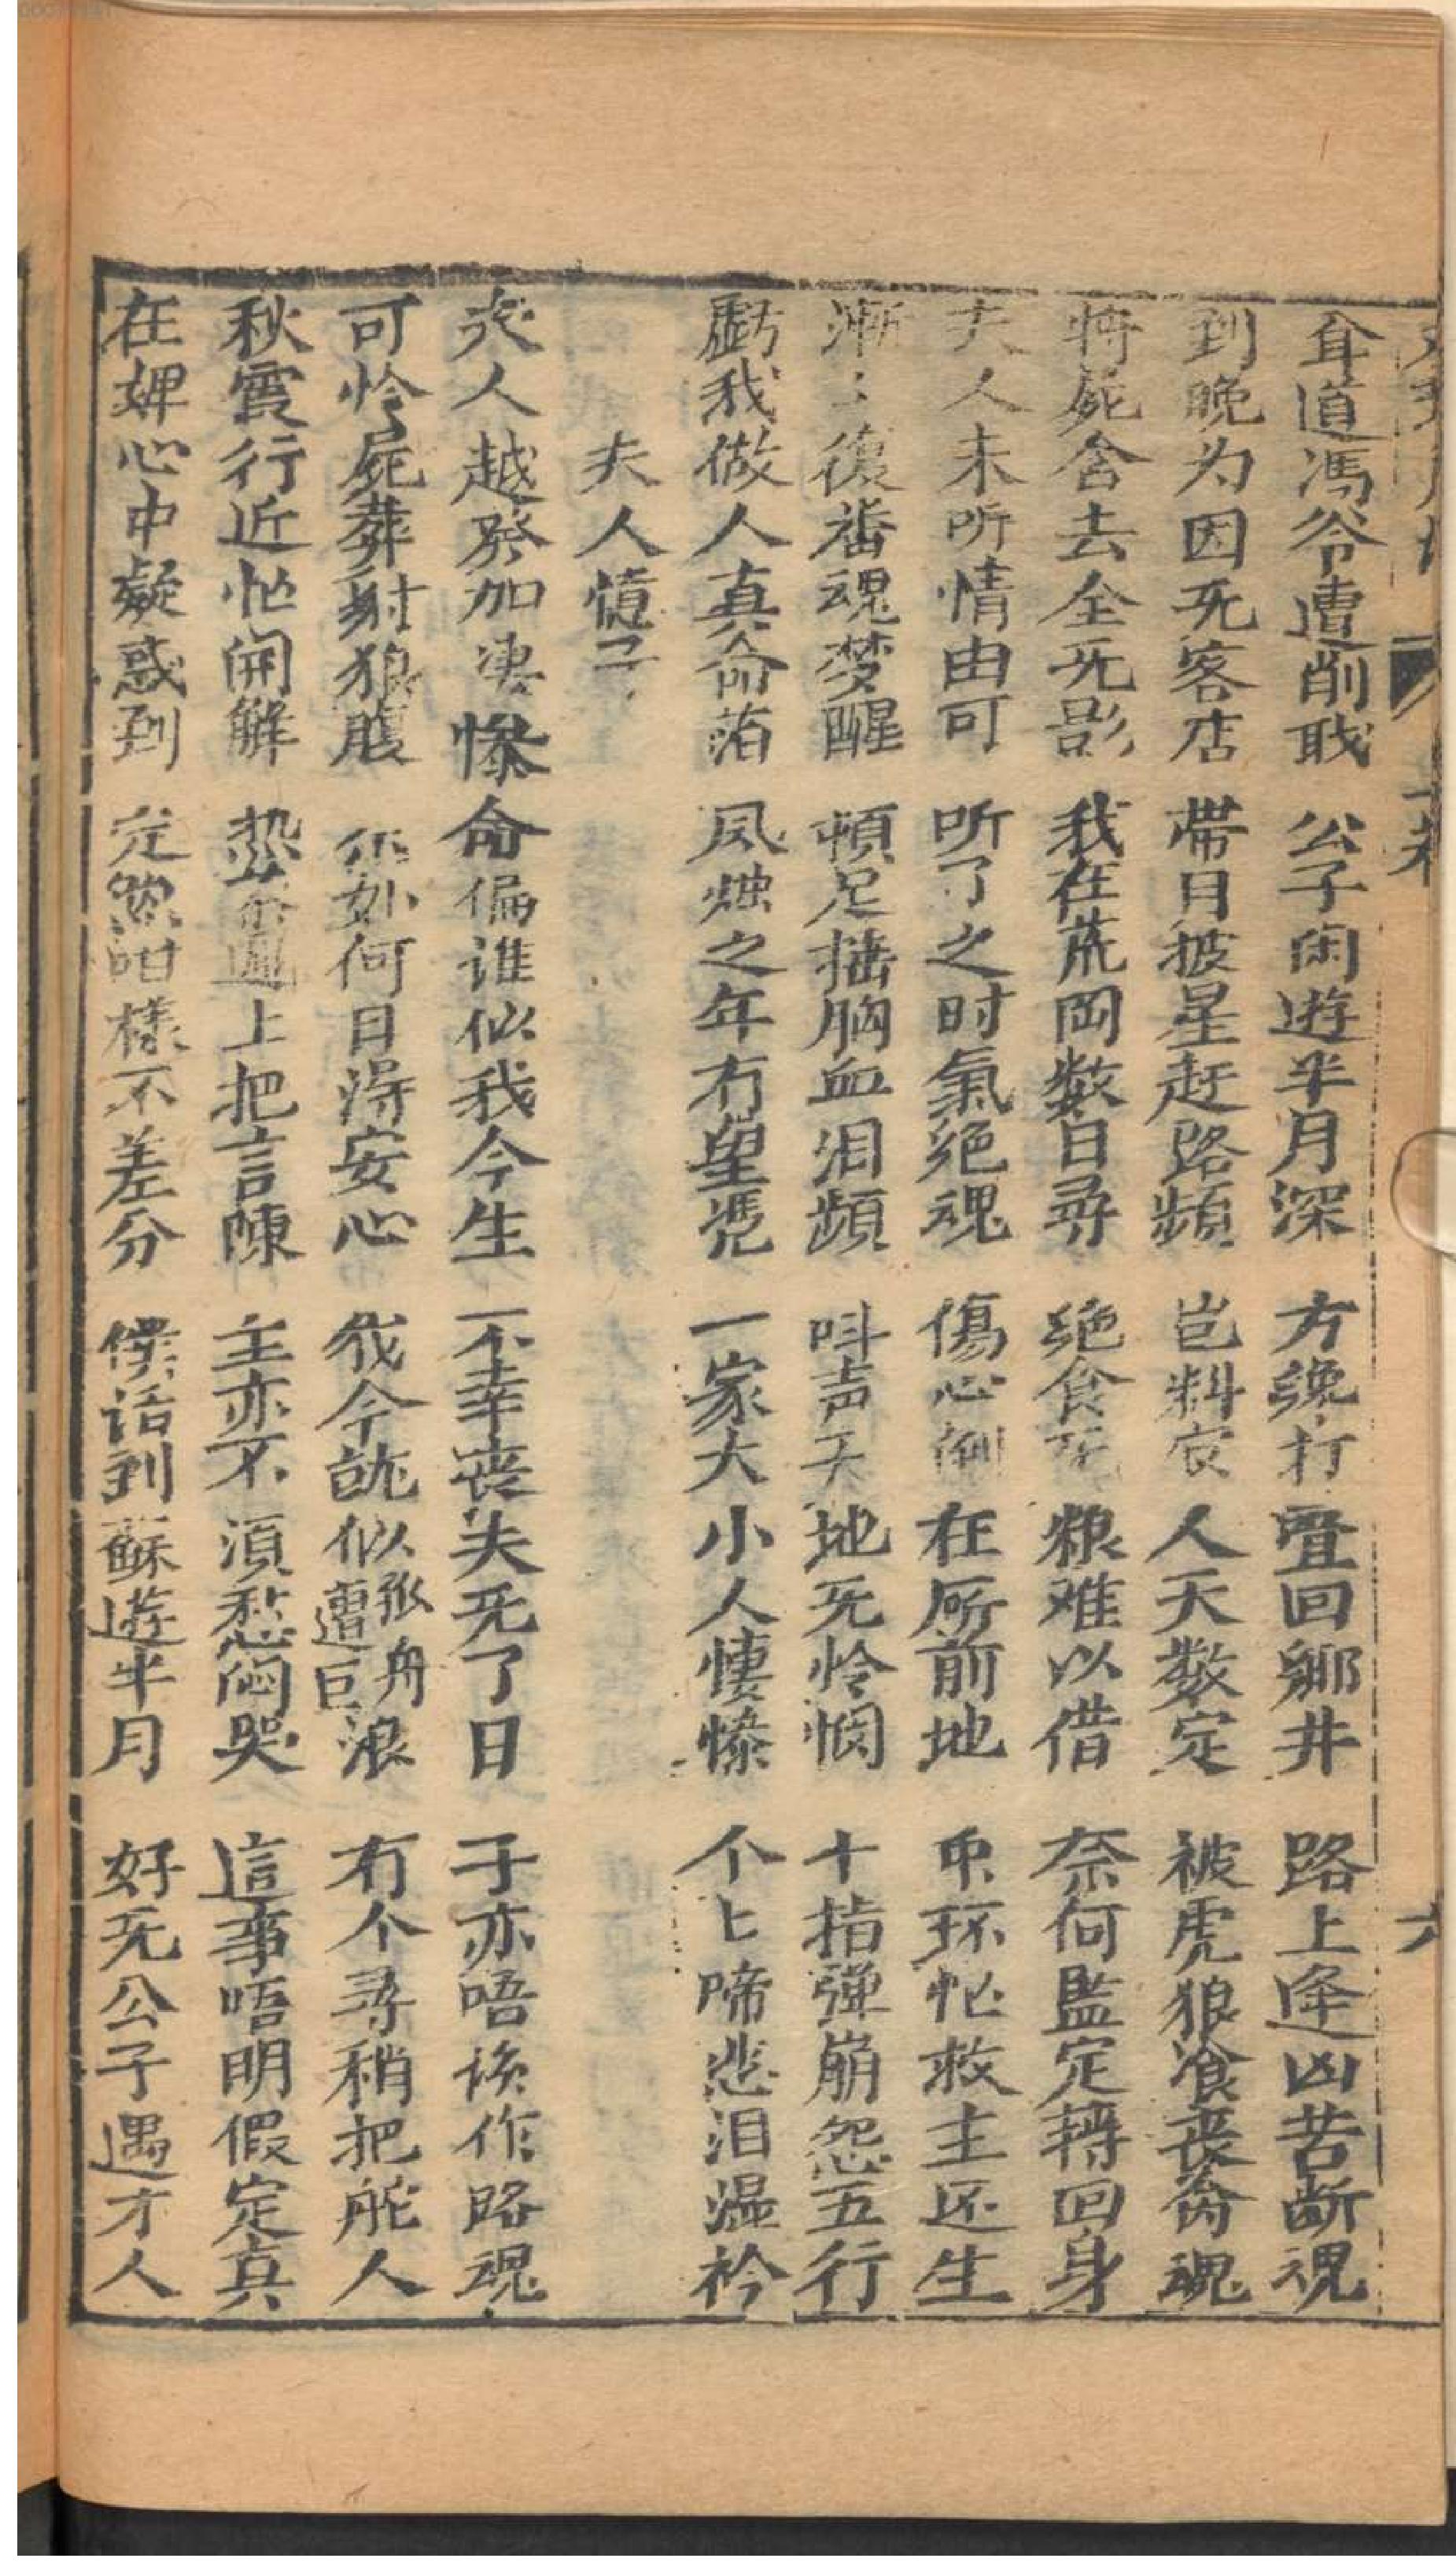 耳道馮爷遭削戝 公子闲遊半月深 方纔打叠回鄉井 路上逢凶苦断魂
到晚为因死客店 帶日披星赶路頻 岂料官人天数定 被虎狼飡丧脔魂
将屍含去全无影 我在荒岡数日尋 绝食无粮难以借 奈何監定轉回身
夫人未听情由可 听了之时氣绝魂 傷心倒在厛前地 环忙救主还生
漸〻復番魂梦醒 頓足搥胸血泪頻 呌声天地无怜悯 十指弹崩怨五行
虧我做人真命薄 风烛之年冇望凭 一家大小人悽慘 个匕啼悲泪濕衿
夫人憶子
夫人越發加凄慘 命偏谁似我今生 不幸丧夫死了日 子亦唔候作路魂
可怜屍葬豺狼腹 不知何日得安心 我今就似孤舟遭巨浪 冇个尋稍把舵人
秋霞行近忙開解 上把言陳 主亦不須愁悶哭 這事唔明假定真
在婢心中疑惑到 定然咁樣不差分 侯话到蘇遊半月 好无公子遇才人
六